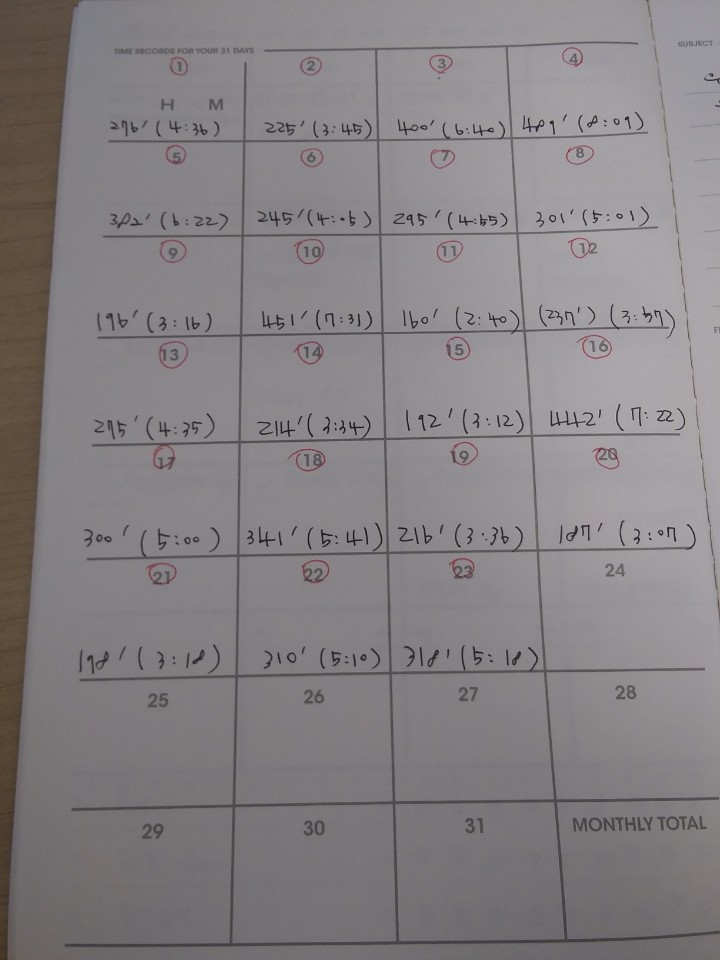 TIME RECORDS FOR YOUR 31 DAYS
SUBJECT
1 2 3 4
H M
276' (4:36) 225' (3:45) 400' (6:40) 489' (8:09)
5 6 7 8
382' (6:22) 245' (4:05) 295' (4:55) 301' (5:01)
9 10 11 12
196' (3:16) 451' (7:31) 160' (2:40) (237') (3:57)
13 14 15 16
275' (4:35) 214' (3:34) 192' (3:12) 442' (7:22)
17 18 19 20
300' (5:00) 341' (5:41) 216' (3:36) 187' (3:07)
21 22 23 24
198' (3:18) 310' (5:10) 318' (5:18)
25 26 27 28
29 30 31 MONTHLY TOTAL